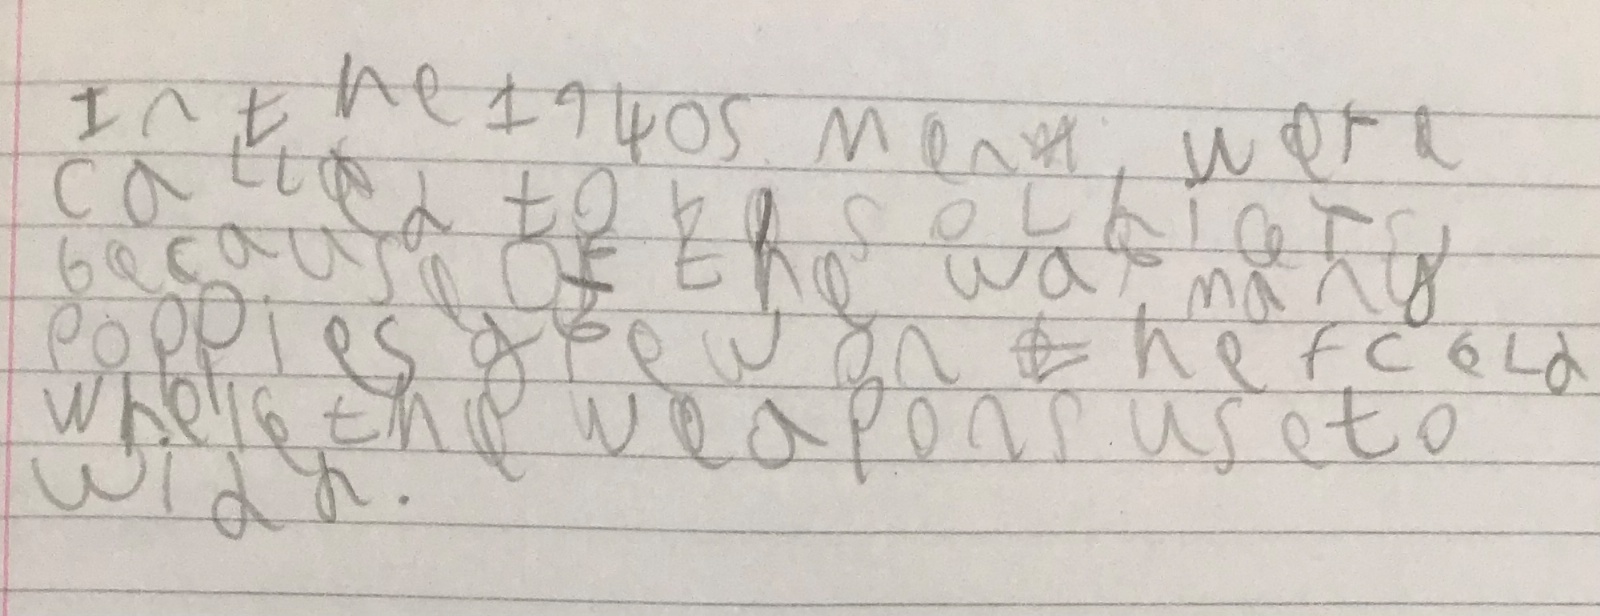 In the 1940s Men were
called to be solhiers
because Of the war many
poppies grew on the fceld
where the weapons use to
widh.